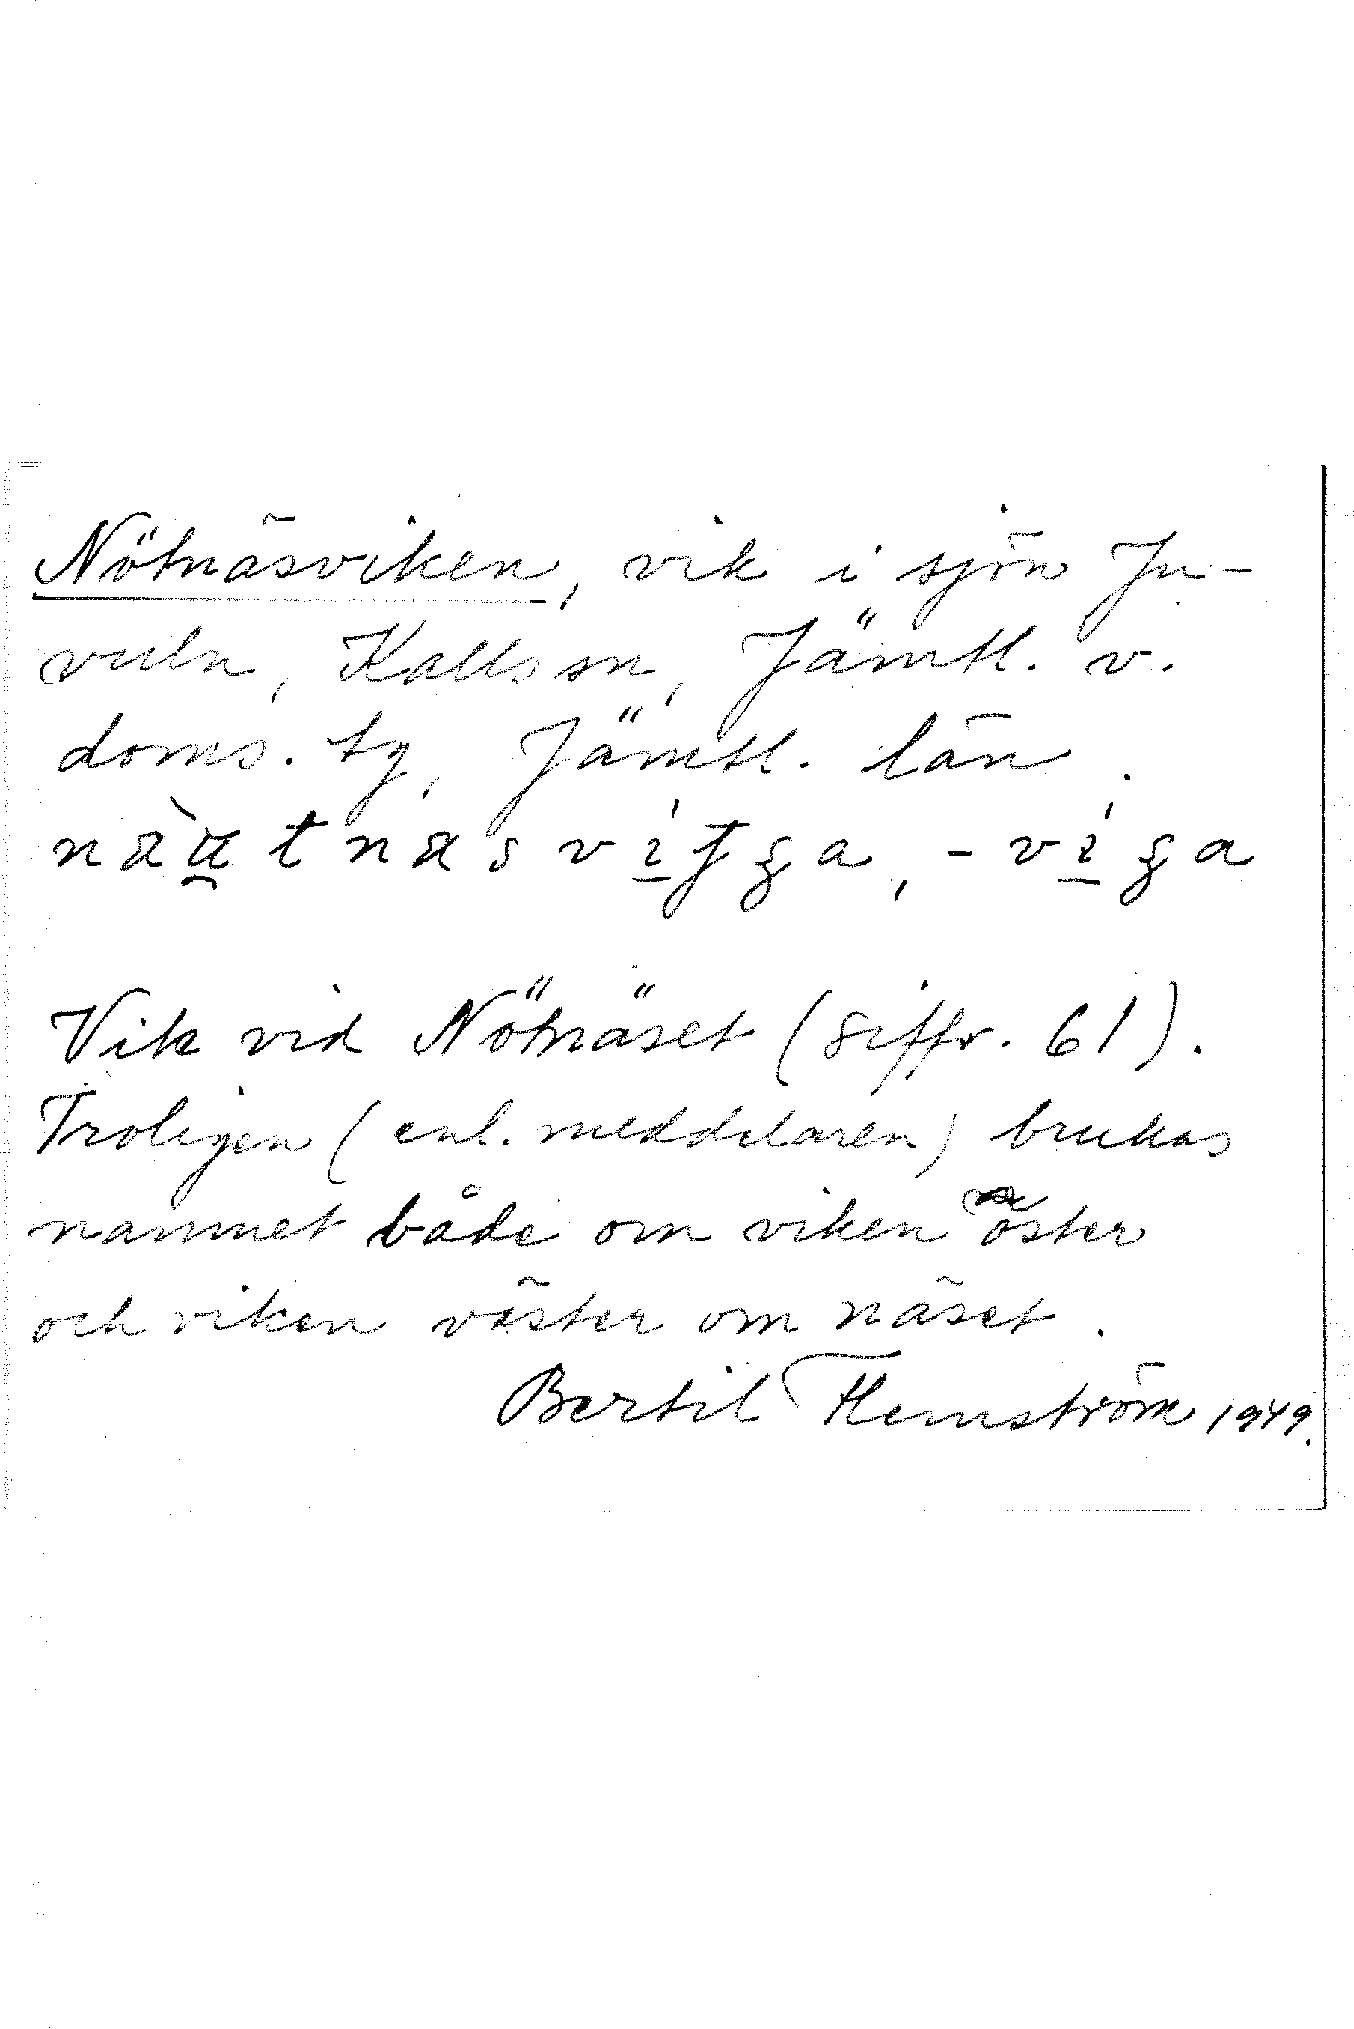 Nötnäsviken, vik i sjön Ju-
veln, Kalls sn, Jämtl. v.
doms. tg, Jämtl. län.
Vik vid Nötnäset (siffr. 61).
Troligen (enl. meddelaren) brukas
namnet både om viken öster
och viken väster om näset.
Bertil Flemström 1949.